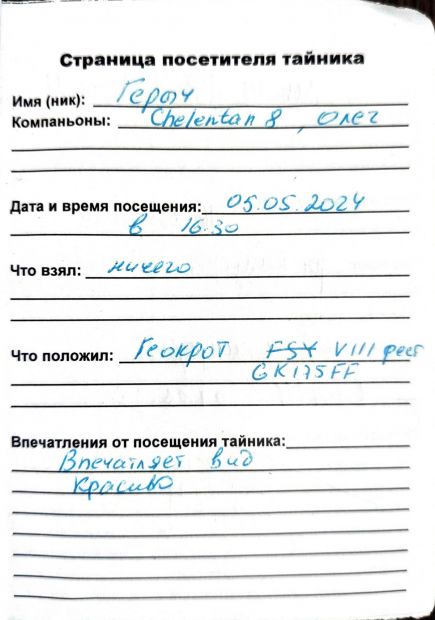 Страница посетителя тайника
Имя (ник): Герыч
Компаньоны: Chelentan 8, Олег
Дата и время посещения: 05.05.2024
в 16.30
Что взял: ничего
Что положил: Геокрот FSY VIII фест
GK175FF
Впечатления от посещения тайника:
Впечатляет вид
Красиво